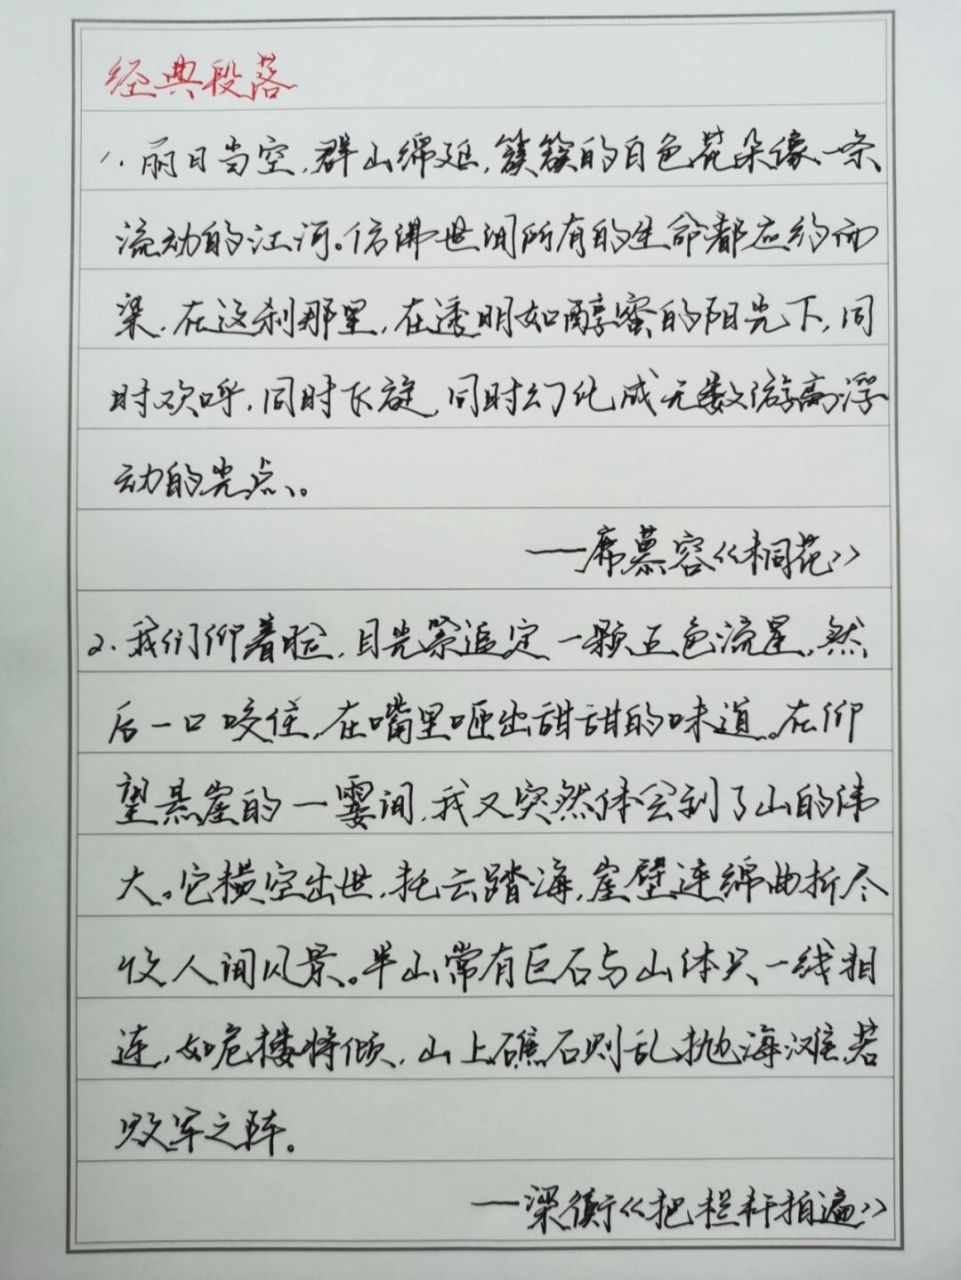 经典段落
1. 丽日当空,群山绵延,簇簇的白色花朵像一条
流动的江河。仿佛世间所有的生命都应约而
来,在这刹那里,在透明如醇蜜的阳光下,同
时欢呼,同时飞旋,同时幻化成无数游离浮
动的光点。
——席慕容《桐花》
2. 我们仰着脸,目光紧追定一颗五色流星,然
后一口咬住,在嘴里咂出甜甜的味道。在仰
望悬崖的一霎间,我又突然体会到了山的伟
大。它横空出世,托云踏海,崖壁连绵曲折尽
收人间风景。半山常有巨石与山体只一线相
连,如危楼将倾,山上礁石则乱抛海滩,若
败军之阵。
——梁衡《把栏杆拍遍》